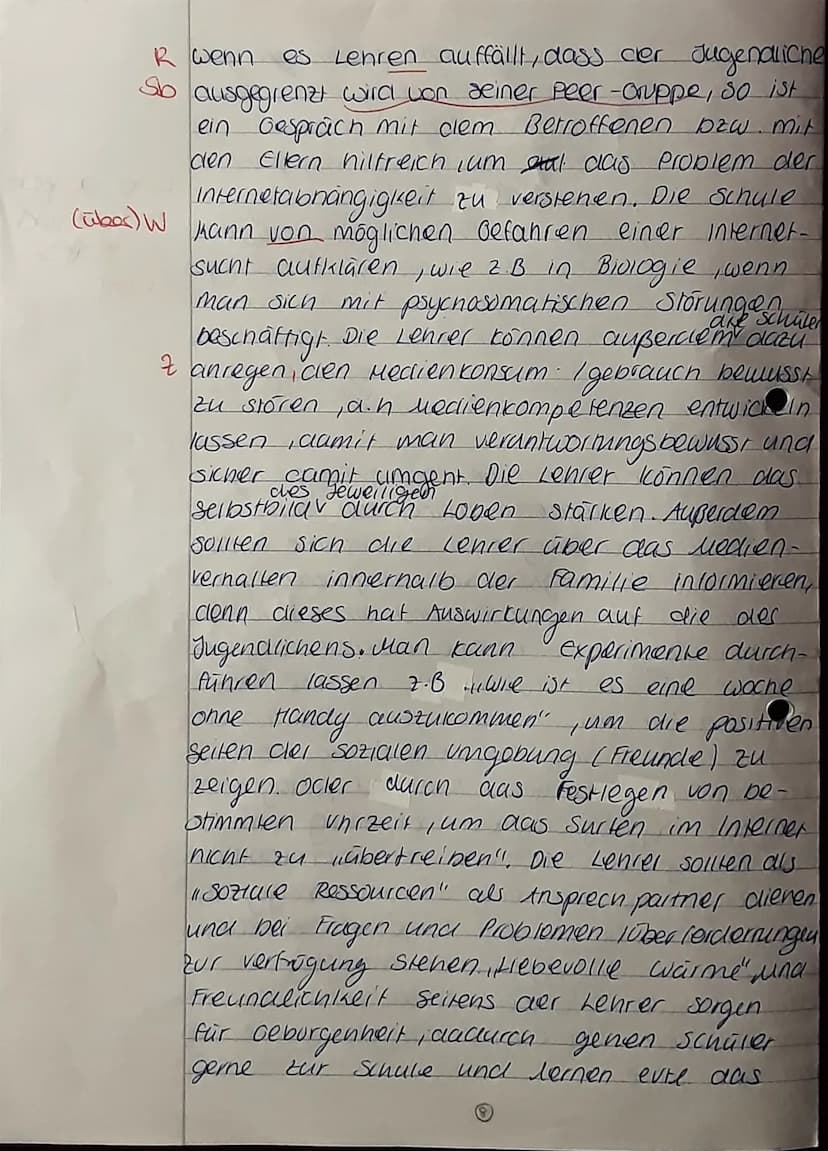 R wenn es Lehren auffällt, dass der Jugendliche
Sb ausgegrenzt wird von seiner Peer-Gruppe, so ist
ein Gespräch mit dem Betroffenen bzw. mit
den Eltern hilfreich, um das Problem der
Internetabhängigkeit zu verstehen. Die Schule
(über) W kann von möglichen Gefahren einer Internet-
sucht aufklären, wie z.B in Biologie, wenn
man sich mit psychosomatischen Störungen
die Schüler
beschäftigt. Die Lehrer können außerdem dazu
Z anregen, den Medienkonsum /gebrauch bewusst
zu stören, d.h Medienkompetenzen entwickeln
lassen, damit man verantwortungsbewusst und
sicher damit umgeht. Die Lehrer können das
des jeweiligen
Selbstbild durch Loben stärken. Außerdem
sollten sich die Lehrer über das Medien-
verhalten innerhalb der Familie informieren,
denn dieses hat Auswirkungen auf die des
Jugendlichens. Man kann Experimente durch-
führen lassen z.B „Wie ist es eine Woche
ohne Handy auszukommen", um die positiven
Seiten der sozialen Umgebung (Freunde) zu
zeigen. Oder durch das Festlegen von be-
stimmten Uhrzeit, um das Surfen im Internet
nicht zu „übertreiben". Die Lehrer sollten als
„Soziale Ressourcen" als Ansprechpartner dienen
und bei Fragen und Problemen /Überforderrungen
zur Verfügung stehen. „Liebevolle Wärme" und
Freundlichkeit seitens der Lehrer sorgen
für Geborgenheit, dadurch gehen Schüler
gerne zur Schule und lernen das
8